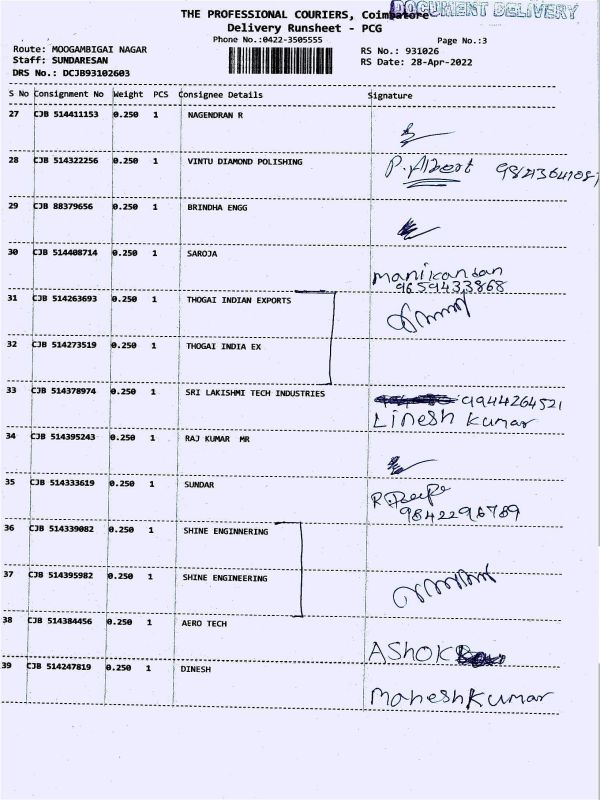 THE PROFESSIONAL COURIERS, Coimbatore
DOCUMENT DELIVERY
Delivery Runsheet - PCG
Phone No.:0422-3505555
Page No.:3
Route: MOOGAMBIGAI NAGAR
RS No.: 931026
Staff: SUNDARESAN
RS Date: 28-Apr-2022
DRS No.: DCJB93102603
S No Consignment No Weight PCS Consignee Details Signature
27 CJB 514411153 0.250 1 NAGENDRAN R
28 CJB 514322256 0.250 1 VINTU DIAMOND POLISHING P. Albert
29 CJB 88379656 0.250 1 BRINDHA ENGG
30 CJB 514408714 0.250 1 SAROJA
Manikandan
9659433868
31 CJB 514263693 0.250 1 THOGAI INDIAN EXPORTS
32 CJB 514273519 0.250 1 THOGAI INDIA EX
33 CJB 514378974 0.250 1 SRI LAKISHMI TECH INDUSTRIES 9944264521
Linesh Kumar
34 CJB 514395243 0.250 1 RAJ KUMAR MR
35 CJB 514333619 0.250 1 SUNDAR
9842298789
36 CJB 514339082 0.250 1 SHINE ENGINNERING
37 CJB 514395982 0.250 1 SHINE ENGINEERING
38 CJB 514384456 0.250 1 AERO TECH
ASHOK
39 CJB 514247819 0.250 1 DINESH
Maheshkumar